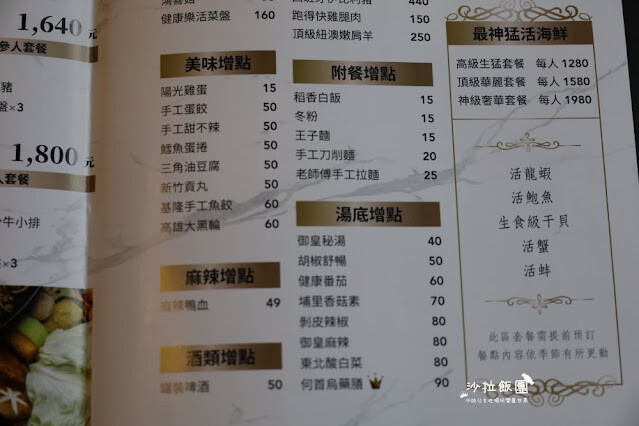 1,640元
參人套餐
豬
盤×3
1,800元
人套餐
牛小排
×3
健康樂活菜盤 160
美味增點
陽光雞蛋 15
手工蛋餃 50
手工甜不辣 50
鱈魚蛋捲 50
三角油豆腐 50
新竹貢丸 50
基隆手工魚餃 60
高雄大黑輪 60
麻辣增點
麻辣鴨血 49
酒類增點
罐裝啤酒 50
440
跑得快雞腿肉 150
頂級紐澳嫩肩羊 250
附餐增點
稻香白飯 15
冬粉 15
王子麵 15
手工刀削麵 20
老師傅手工拉麵 25
湯底增點
御皇秘湯 40
胡椒舒暢 50
健康番茄 60
埔里香菇素 70
剝皮辣椒 80
御皇麻辣 80
東北酸白菜 80
何首烏藥膳 90
最神猛活海鮮
高級生猛套餐 每人 1280
頂級華麗套餐 每人 1580
神級奢華套餐 每人 1980
活龍蝦
活鮑魚
生食級干貝
活蟹
活蚌
此區套餐需提前預訂
餐點內容依季節有所更動
沙拉飯團